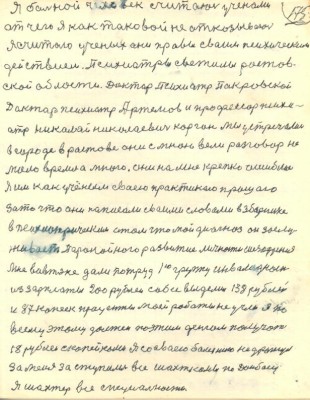 Я больной человек считают учёным
от чего я как таковой не отказываюс
я считаю учёных они правы своим психическим
действием. Психиатры светилы ростов-
ской области. Доктар Психиатр Покровской
Доктар психиатр Артемов и профессор психи-
атр николай николаевич корган мы устречалис
в городе в ростове они с мной вели разговор не
мало времна много. они на мне крепко ошиблис
Я им как учёным своего практикта прошаю
За то что они написали своими словами в зборнике
в психиатрическим стом что мой диагноз он заслу-
живает Паранойного развитие личности
Мне втэке дали по труд 1ю группу инвалидности
из зарплаты 200 рублей сово всего 138 рублей
и 87 копеек проценты моей работы не учли я по
всему этому должен поэтим делом получат
58 рублей с копейкомы Я со своею болезнию не дружу
За меня заступилис все шахткомы по Донбасу
Я шахтер все специалноста